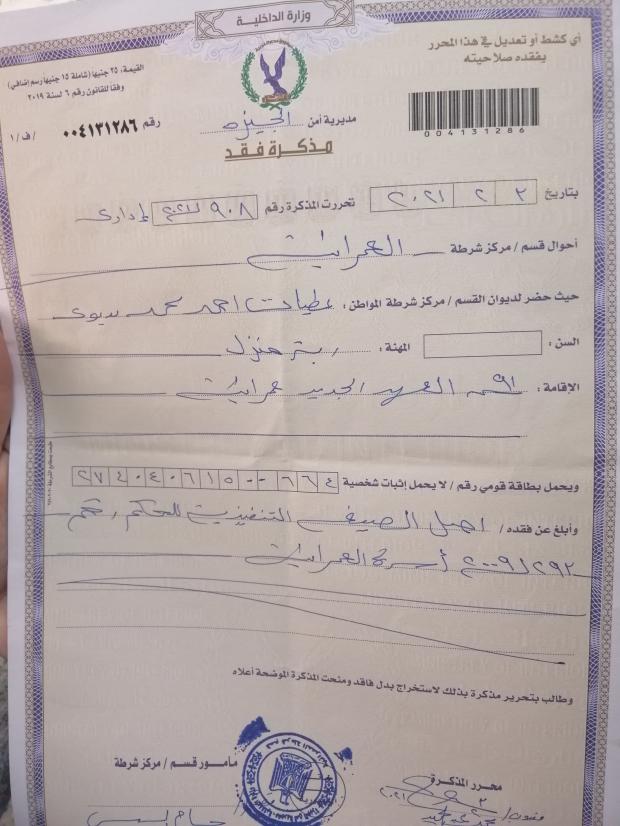 وزارة الداخلية
أي كشط أو تعديل في هذا المحرر
يفقده صلاحيته
القيمة: ٢٥ جنيها (شاملة ١٥ جنيها رسم إضافي)
وفقا للقانون رقم ٦ لسنة ٢٠١٩
004131286
مديرية أمن الجيزه
رقم ٠٠٤١٣١٢٨٦ / ف / ١
مذكرة فقد
بتاريخ ٢ ٢ ٢٠٢١ تحررت المذكرة رقم ٩٠٨ إدارى
أحوال قسم / مركز شرطة العمرانية
حيث حضر لديوان القسم / مركز شرطة المواطن : عطيات احمد محمد
السن : المهنة : ربة منزل
الإقامة : العهد الجديد عمرانية
ويحمل بطاقة قومي رقم / لا يحمل إثبات شخصية ٢٧٤٠٤٠٦١٥٠٠٦٦٤
وأبلغ عن فقده / اصل الصيغة التنفيذية للحكم رقم
١٢٩٢ أسرة العمرانية
وطالب بتحرير مذكرة بذلك لاستخراج بدل فاقد ومنحت المذكرة الموضحة أعلاه
محرر المذكرة
مأمور قسم / مركز شرطة